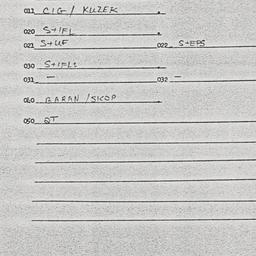 011 CIG / KUZEK
020 S+IFL
021 S+UF 022 S+EPS
030 S+IFLS
031 - 032 -
040 BARAN / SKOP
050 QT